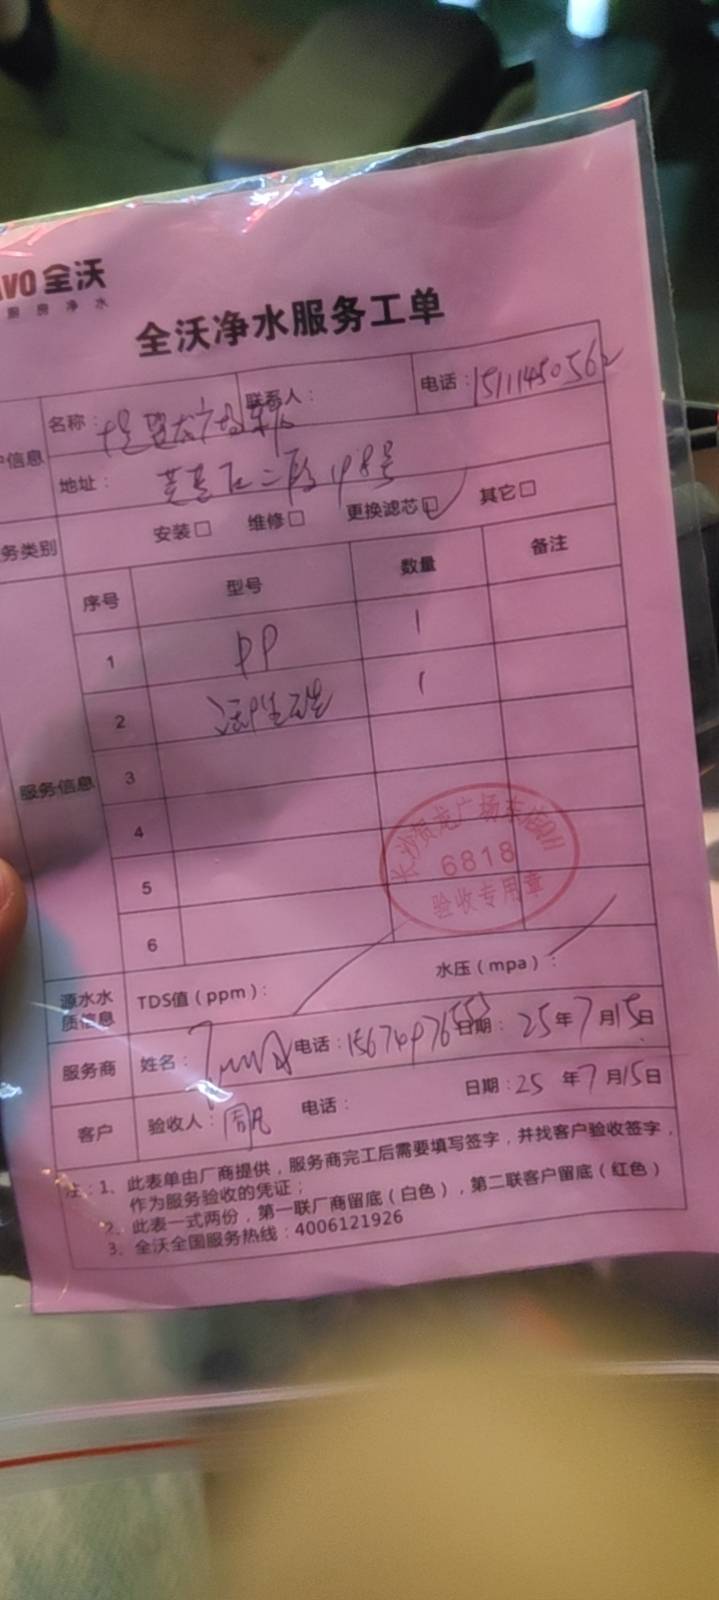 VO 全沃
厨房净水
全沃净水服务工单
信息 名称： 联系人： 电话：15111450562
地址： 芙蓉区二段98号
务类别 安装□ 维修□ 更换滤芯□✓ 其它□
服务信息 序号 型号 数量 备注
1 PP 1
2 活性 1
3
4
5
6
长沙贺龙广场车
6818
验收专用章
源水水质信息 TDS值（ppm）： 水压（mpa）：
服务商 姓名： 电话：15674976555 日期：25年7月15日
客户 验收人：周凡 电话： 日期：25年7月15日
注：1、此表单由厂商提供，服务商完工后需要填写签字，并找客户验收签字，
作为服务验收的凭证；
2、此表一式两份，第一联厂商留底（白色），第二联客户留底（红色）
3、全沃全国服务热线：4006121926